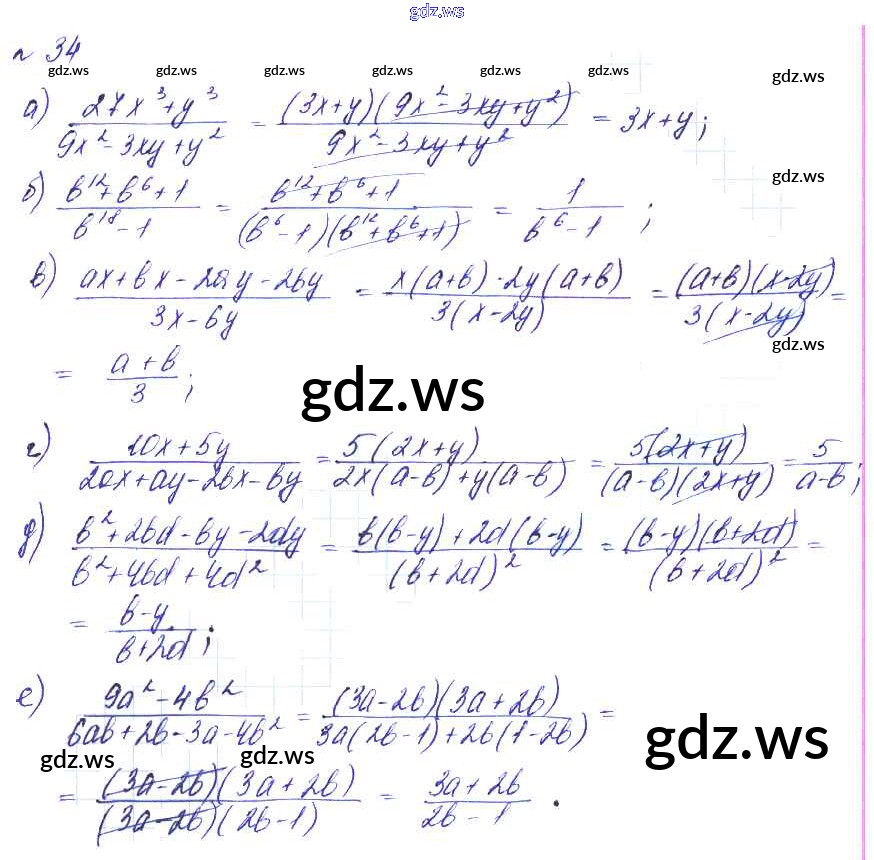 gdz.ws
№ 34
gdz.ws gdz.ws gdz.ws gdz.ws gdz.ws gdz.ws gdz.ws
а) (27x³+y³)/(9x²-3xy+y²) = (3x+y)(9x²-3xy+y²)/(9x²-3xy+y²) = 3x+y;
gdz.ws
б) (b¹²+b⁶+1)/(b¹⁸-1) = (b¹²+b⁶+1)/((b⁶-1)(b¹²+b⁶+1)) = 1/(b⁶-1);
в) (ax+bx-2ay-2by)/(3x-6y) = (x(a+b)-2y(a+b))/(3(x-2y)) = (a+b)(x-2y)/(3(x-2y)) =
gdz.ws
= (a+b)/3;
gdz.ws
г) (10x+5y)/(2ax+ay-2bx-by) = 5(2x+y)/(2x(a-b)+y(a-b)) = 5(2x+y)/((a-b)(2x+y)) = 5/(a-b);
д) (b²+2bd-by-2dy)/(b²+4bd+4d²) = (b(b-y)+2d(b-y))/(b+2d)² = (b-y)(b+2d)/(b+2d)² =
= (b-y)/(b+2d);
е) (9a²-4b²)/(6ab+2b-3a-4b²) = (3a-2b)(3a+2b)/(3a(2b-1)+2b(1-2b)) =
gdz.ws gdz.ws gdz.ws
= (3a-2b)(3a+2b)/((3a-2b)(2b-1)) = (3a+2b)/(2b-1).